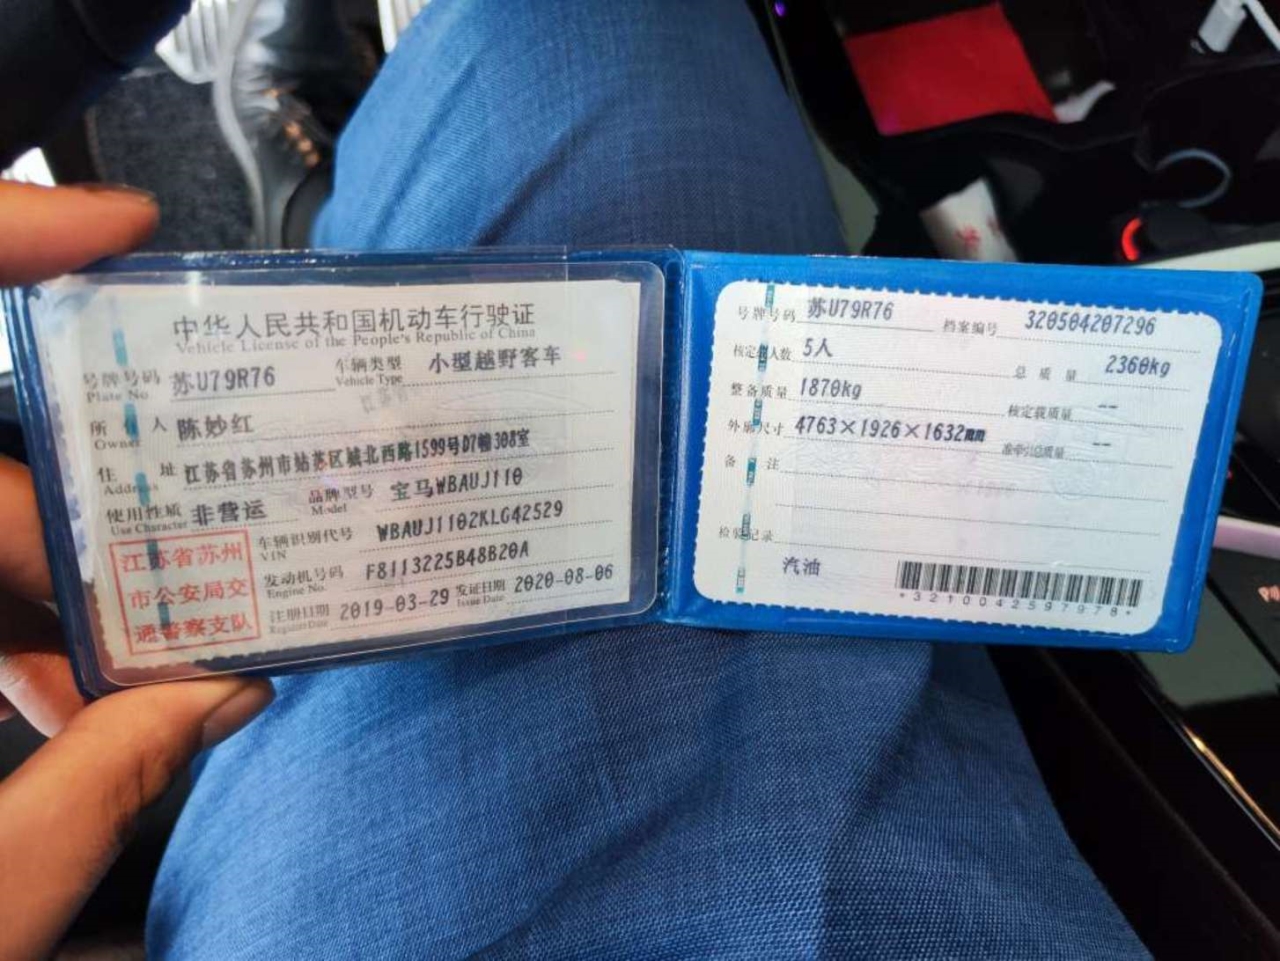 中华人民共和国机动车行驶证
Vehicle License of the People's Republic of China
号牌号码 Plate No. 苏U79R76 车辆类型 Vehicle Type 小型越野客车
所有人 Owner 陈妙红
住址 Address 江苏省苏州市姑苏区城北西路1599号D7幢308室
使用性质 Use Character 非营运 品牌型号 Model 宝马WBAUJ110
江苏省苏州
市公安局交
通警察支队
车辆识别代号 VIN WBAUJ1102KLG42529
发动机号码 Engine No. F8113225B48B20A
注册日期 Register Date 2019-03-29 发证日期 Issue Date 2020-08-06
号牌号码 苏U79R76 档案编号 320504207296
核定载人数 5人 总质量 2360kg
整备质量 1870kg 核定载质量 --
外廓尺寸 4763×1926×1632 准牵引总质量 --
备注
检验记录
汽油
*3210042597978*